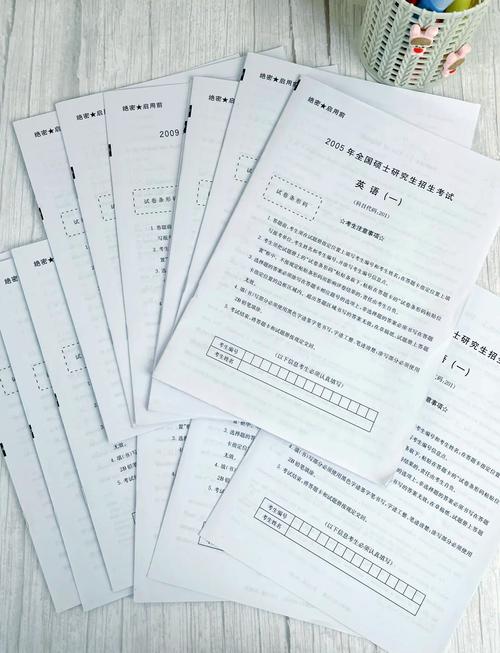 绝密★启用前
绝密★启用前
绝密★启用前
2009
绝密★启用前
绝密★启用前
绝密★启用前
2005 年全国硕士研究生招生考试
英 语（一）
（科目代码:201）
☆考生注意事项☆
试卷条形码
1. 答题前,考生须在试题册指定位置上填写考生编号和考生姓名;在答题卡指定位置上填
写报考单位、考生姓名和考生编号,并涂写考生编号信息点。
2. 考生须把试题册上的“试卷条形码”粘贴条取下,粘贴在答题卡的“试卷条形码粘贴位
置”框中。不按规定粘贴条形码而影响评卷结果的,责任由考生自负。
3. 选择题的答案必须涂写在答题卡相应题号的选项上,非选择题的答案必须书写在答题
卡指定位置的边框区域内。超出答题区域书写的答案无效;在草稿纸、试题册上答题
无效。
4. 填(书)写部分必须使用黑色字迹签字笔书写,字迹工整、笔迹清楚;涂写部分必须使用
2B铅笔填涂。
5. 考试结束,将答题卡和试题册按规定交回。
（以下信息考生必须认真填写）
考生编号
考生姓名
试卷条形
语（一）
代码:201）
注意事项☆
4. 填(书)写部分必须使用黑色字迹签字笔书写,字迹工整、笔迹清楚;涂写部分必须使用
2B铅笔填涂。
5. 考试结束,将答题卡和试题册按规定交回。
（以下信息考生必须认真填写）
考生编号
考生姓名